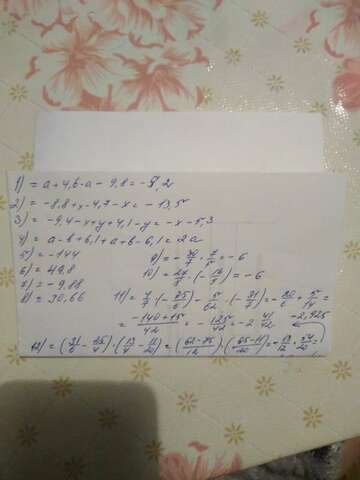 1) = a + 4,6 - a - 9,8 = -5,2
2) = -8,8 + x - 4,7 - x = -13,5
3) = -9,4 - x + y + 4,1 - y = -x - 5,3
4) = a - b + 6,1 + a + b - 6,1 = 2a
5) = -144
6) = 49,8
7) = -9,88
8) = 30,66
9) = - 30/7 · 7/5 = -6
10) = 27/8 · (- 16/9) = -6
11) = 4/7 · (- 35/6) - 5/62 · (- 31/7) = - 20/6 + 5/14 =
= -140+15/42 = - 125/42 = -2 41/42
-2,925
12) = (31/6 - 35/4) · (13/4 - 11/20) = (62-85/12) · (65-11/20) = - 13/12 · 54/20 =